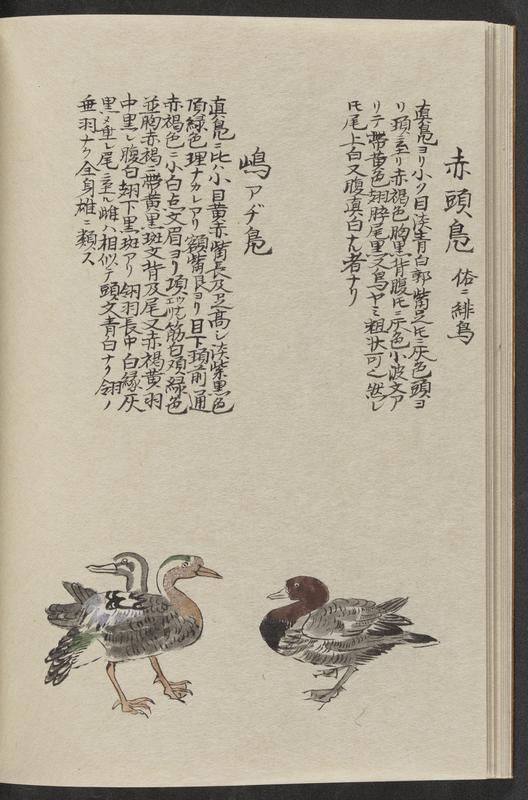 赤頭鳬 俗ニ緋鳥
真鳬ヨリ小ク目淡青白郭觜足𪜈ニ灰色頭ヨ
リ頚ニ至リ赤褐色胸黒背腹𪜈ニ灰色小波文ア
リテ帯黄色翅脺尾里叉烏ヤミ粗状可シ然レ
𪜈尾上白又腹真白ナル者ナリ
嶋アヂ鳬
真鳬ニ比ハ小目黄赤觜長及足高シ淡紫黒色
頂緑色理ナカレアリ額觜艮ヨリ目下頚前通
赤褐色ニ小白点文眉ヨリ項筋白項緑色
並胸赤褐ニ帯黄黒斑文背及尾又赤褐黄羽
中黒レ腹白翅下黒斑アリ翎羽長中白縁灰
黒〆垂レ尾ニ至ル雌ハ相似テ頭文青白ナク翎ノ
垂羽ナク全身雄ニ類ス